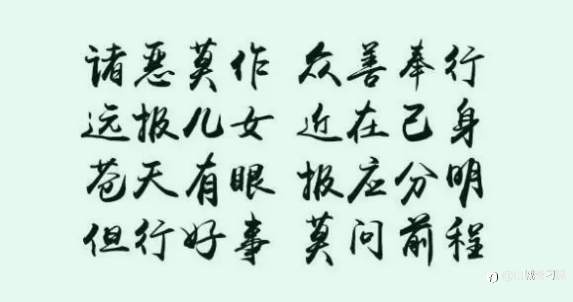 诸恶莫作 众善奉行
远报儿女 近在己身
苍天有眼 报应分明
但行好事 莫问前程